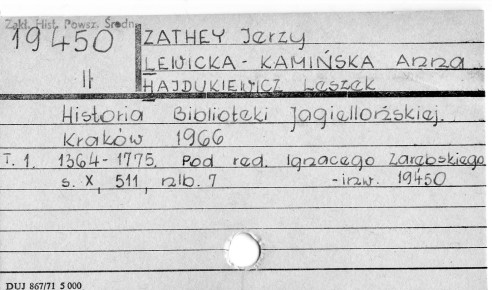 Zakł. Hist. Powsz. Średn.
19450
II
ZATHEY Jerzy
LEWICKA-KAMIŃSKA Anna
HAJDUKIEWICZ Leszek
Historia Biblioteki Jagiellońskiej.
Kraków 1966
T. 1. 1364-1775. Pod red. Ignacego Zarębskiego
s. X, 511, nlb. 7 - inw. 19450
DUJ 867/71 5 000